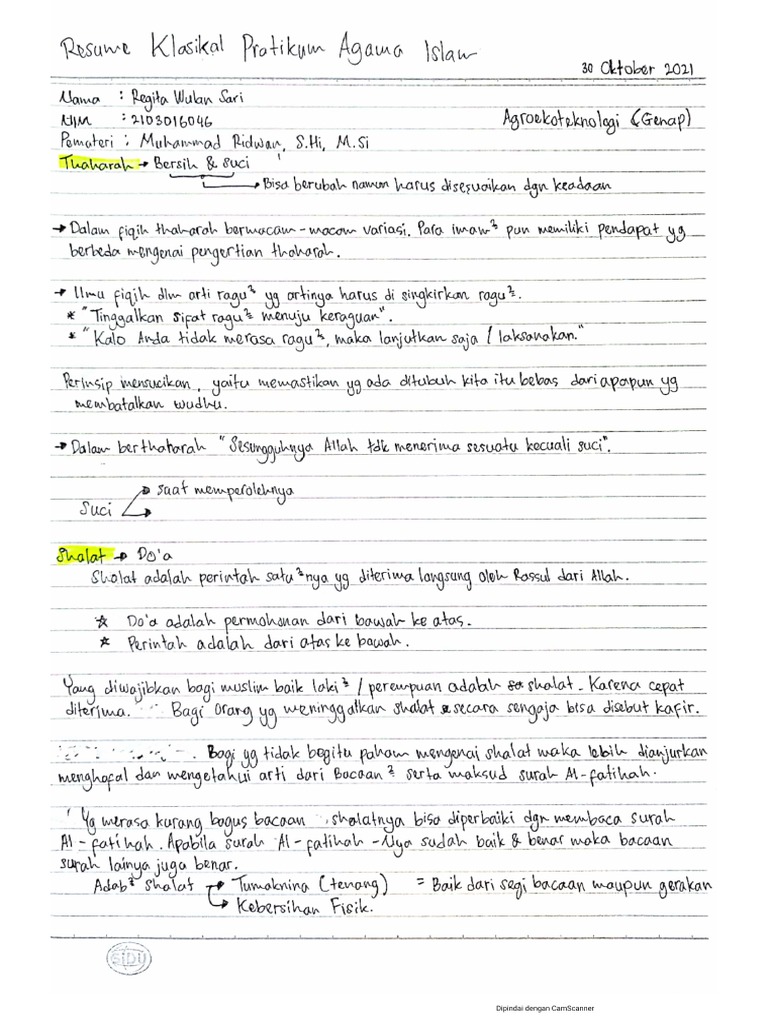 Resume Klasikal Pratikum Agama Islam
30 Oktober 2021
Nama : Regita Wulan Sari
NIM : 2103016046
Agroekoteknologi (Genap)
Pemateri : Muhammad Ridwan, S.Hi, M.Si
Thaharah → Bersih & suci
→ Bisa berubah namun harus disesuaikan dgn keadaan
→ Dalam fiqih thaharah bermacam-macam variasi. Para imam² pun memiliki pendapat yg
berbeda mengenai pengertian thaharah.
→ Ilmu fiqih dlm arti ragu² yg artinya harus di singkirkan ragu².
* "Tinggalkan sifat ragu² menuju keraguan".
* "Kalo Anda tidak merasa ragu², maka lanjutkan saja / laksanakan."
Perinsip mensucikan, yaitu memastikan yg ada ditubuh kita itu bebas dari apapun yg
membatalkan wudhu.
→ Dalam berthaharah "Sesungguhnya Allah tdk menerima sesuatu kecuali suci".
→ saat memperolehnya
Suci
→
Shalat → Do'a
Sholat adalah perintah satu²nya yg diterima langsung oleh Rassul dari Allah.
☆ Do'a adalah permohonan dari bawah ke atas.
* Perintah adalah dari atas ke bawah.
Yang diwajibkan bagi muslim baik laki² / perempuan adalah shalat. Karena cepat
diterima. Bagi orang yg meninggalkan shalat secara sengaja bisa disebut kafir.
Bagi yg tidak begitu paham mengenai shalat maka lebih dianjurkan
menghafal dan mengetahui arti dari Bacaan² serta maksud surah Al-fatihah.
Yg merasa kurang bagus bacaan shalatnya bisa diperbaiki dgn membaca surah
Al-fatihah. Apabila surah Al-fatihah-Nya sudah baik & benar maka bacaan
surah lainya juga benar.
Adab² shalat → Tumaknina (tenang) = Baik dari segi bacaan maupun gerakan
→ Kebersihan Fisik.
SIDU
Dipindai dengan CamScanner